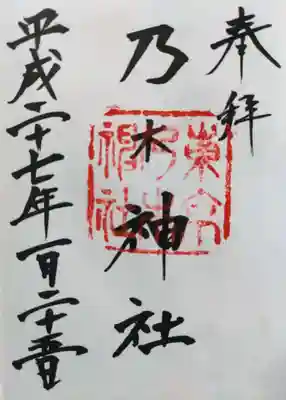 奉拝
乃木神社
東京乃木神社
平成二十七年一月二十五日